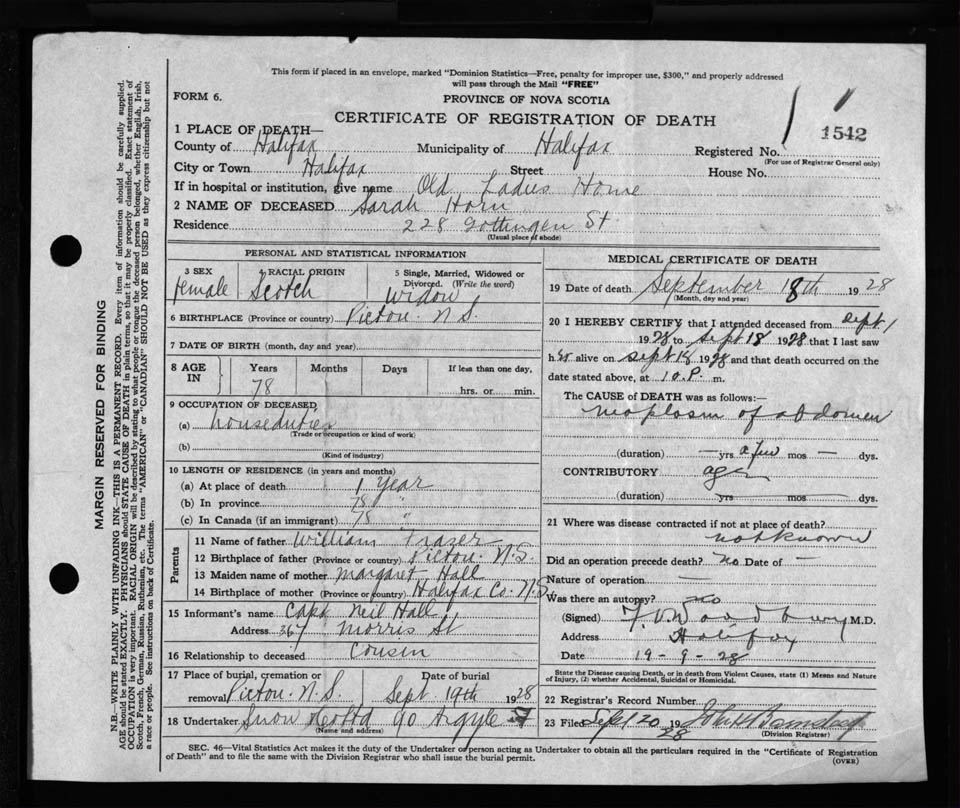 This form if placed in an envelope, marked "Dominion Statistics—Free, penalty for improper use, $300," and properly addressed
will pass through the Mail "FREE"
FORM 6.
PROVINCE OF NOVA SCOTIA
CERTIFICATE OF REGISTRATION OF DEATH
1542
1 PLACE OF DEATH—
County of Halifax Municipality of Halifax Registered No.
(For use of Registrar General only)
City or Town Halifax Street House No.
If in hospital or institution, give name Old Ladies Home
2 NAME OF DECEASED Sarah Horn
Residence 228 Gottingen St
(Usual place of abode)
PERSONAL AND STATISTICAL INFORMATION
3 SEX Female
4 RACIAL ORIGIN Scotch
5 Single, Married, Widowed or Divorced. (Write the word) Widow
6 BIRTHPLACE (Province or country) Pictou. N.S.
7 DATE OF BIRTH (month, day and year)
8 AGE IN Years Months Days If less than one day,
78 hrs. or min.
9 OCCUPATION OF DECEASED
(a) houseduties
(Trade or occupation or kind of work)
(b)
(Kind of industry)
10 LENGTH OF RESIDENCE (in years and months)
(a) At place of death 1 Year
(b) In province 78 "
(c) In Canada (if an immigrant) 78 "
Parents
11 Name of father William Frazer
12 Birthplace of father (Province or country) Pictou. N.S.
13 Maiden name of mother Margaret Hall
14 Birthplace of mother (Province or country) Halifax Co. N.S.
15 Informant's name Capt Neil Hall
Address 367 Morris St
16 Relationship to deceased Cousin
17 Place of burial, cremation or removal Pictou. N.S. Date of burial Sept. 19th 1928
18 Undertaker Snow 90 Argyle St
(Name and address)
MEDICAL CERTIFICATE OF DEATH
19 Date of death September 18th 1928
(Month, day and year)
20 I HEREBY CERTIFY that I attended deceased from Sept 1
1928 to Sept 18 1928 that I last saw
her alive on Sept 18 1928 and that death occurred on
date stated above, at 10.P. m.
The CAUSE of DEATH was as follows:
neoplasm of abdomen
(duration) — yrs a few mos — dys.
CONTRIBUTORY age
(duration) yrs mos dys.
21 Where was disease contracted if not at place of death?
not known
Did an operation precede death? no Date of —
Nature of operation —
Was there an autopsy? no
(Signed) F. V. Woodbury M.D.
Address Halifax
Date 19-9-28
State the Disease causing Death, or in death from Violent Causes, state (1) Means and Nature
of Injury, (2) whether Accidental, Suicidal or Homicidal.
22 Registrar's Record Number
23 Filed Sept 20 1928 John
(Division Registrar)
SEC. 46—Vital Statistics Act makes it the duty of the Undertaker or person acting as Undertaker to obtain all the particulars required in the "Certificate of Registration
of Death" and to file the same with the Division Registrar who shall issue the burial permit.
(OVER)
MARGIN RESERVED FOR BINDING
N.B.—WRITE PLAINLY WITH UNFADING INK—THIS IS A PERMANENT RECORD. Every item of information should be carefully supplied.
AGE should be stated EXACTLY. PHYSICIANS should STATE CAUSE OF DEATH in plain terms, so that it may be properly classified. Exact statement of
OCCUPATION is very important. RACIAL ORIGIN will be described by stating to what people or tongue the deceased person belonged, whether English, Irish,
Scotch, French, German, Russian, Ruthenian, etc. The terms "AMERICAN" or "CANADIAN" SHOULD NOT BE USED as they express citizenship but not
a race or people. See instructions on back of Certificate.